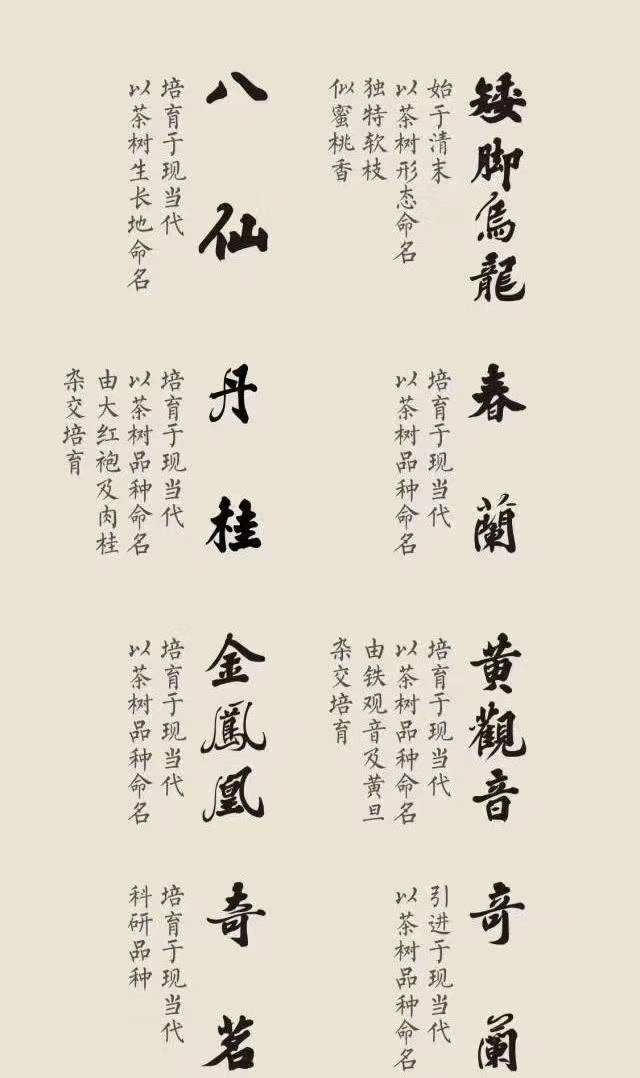 矮脚烏龍
始于清末
以茶树形态命名
独特软枝
似蜜桃香
八仙
培育于现当代
以茶树生长地命名
春蘭
培育于现当代
以茶树品种命名
丹桂
培育于现当代
以茶树品种命名
由大红袍及肉桂
杂交培育
黄觀音
培育于现当代
以茶树品种命名
由铁观音及黄旦
杂交培育
金鳳凰
培育于现当代
以茶树品种命名
奇蘭
引进于现当代
以茶树品种命名
奇茗
培育于现当代
科研品种